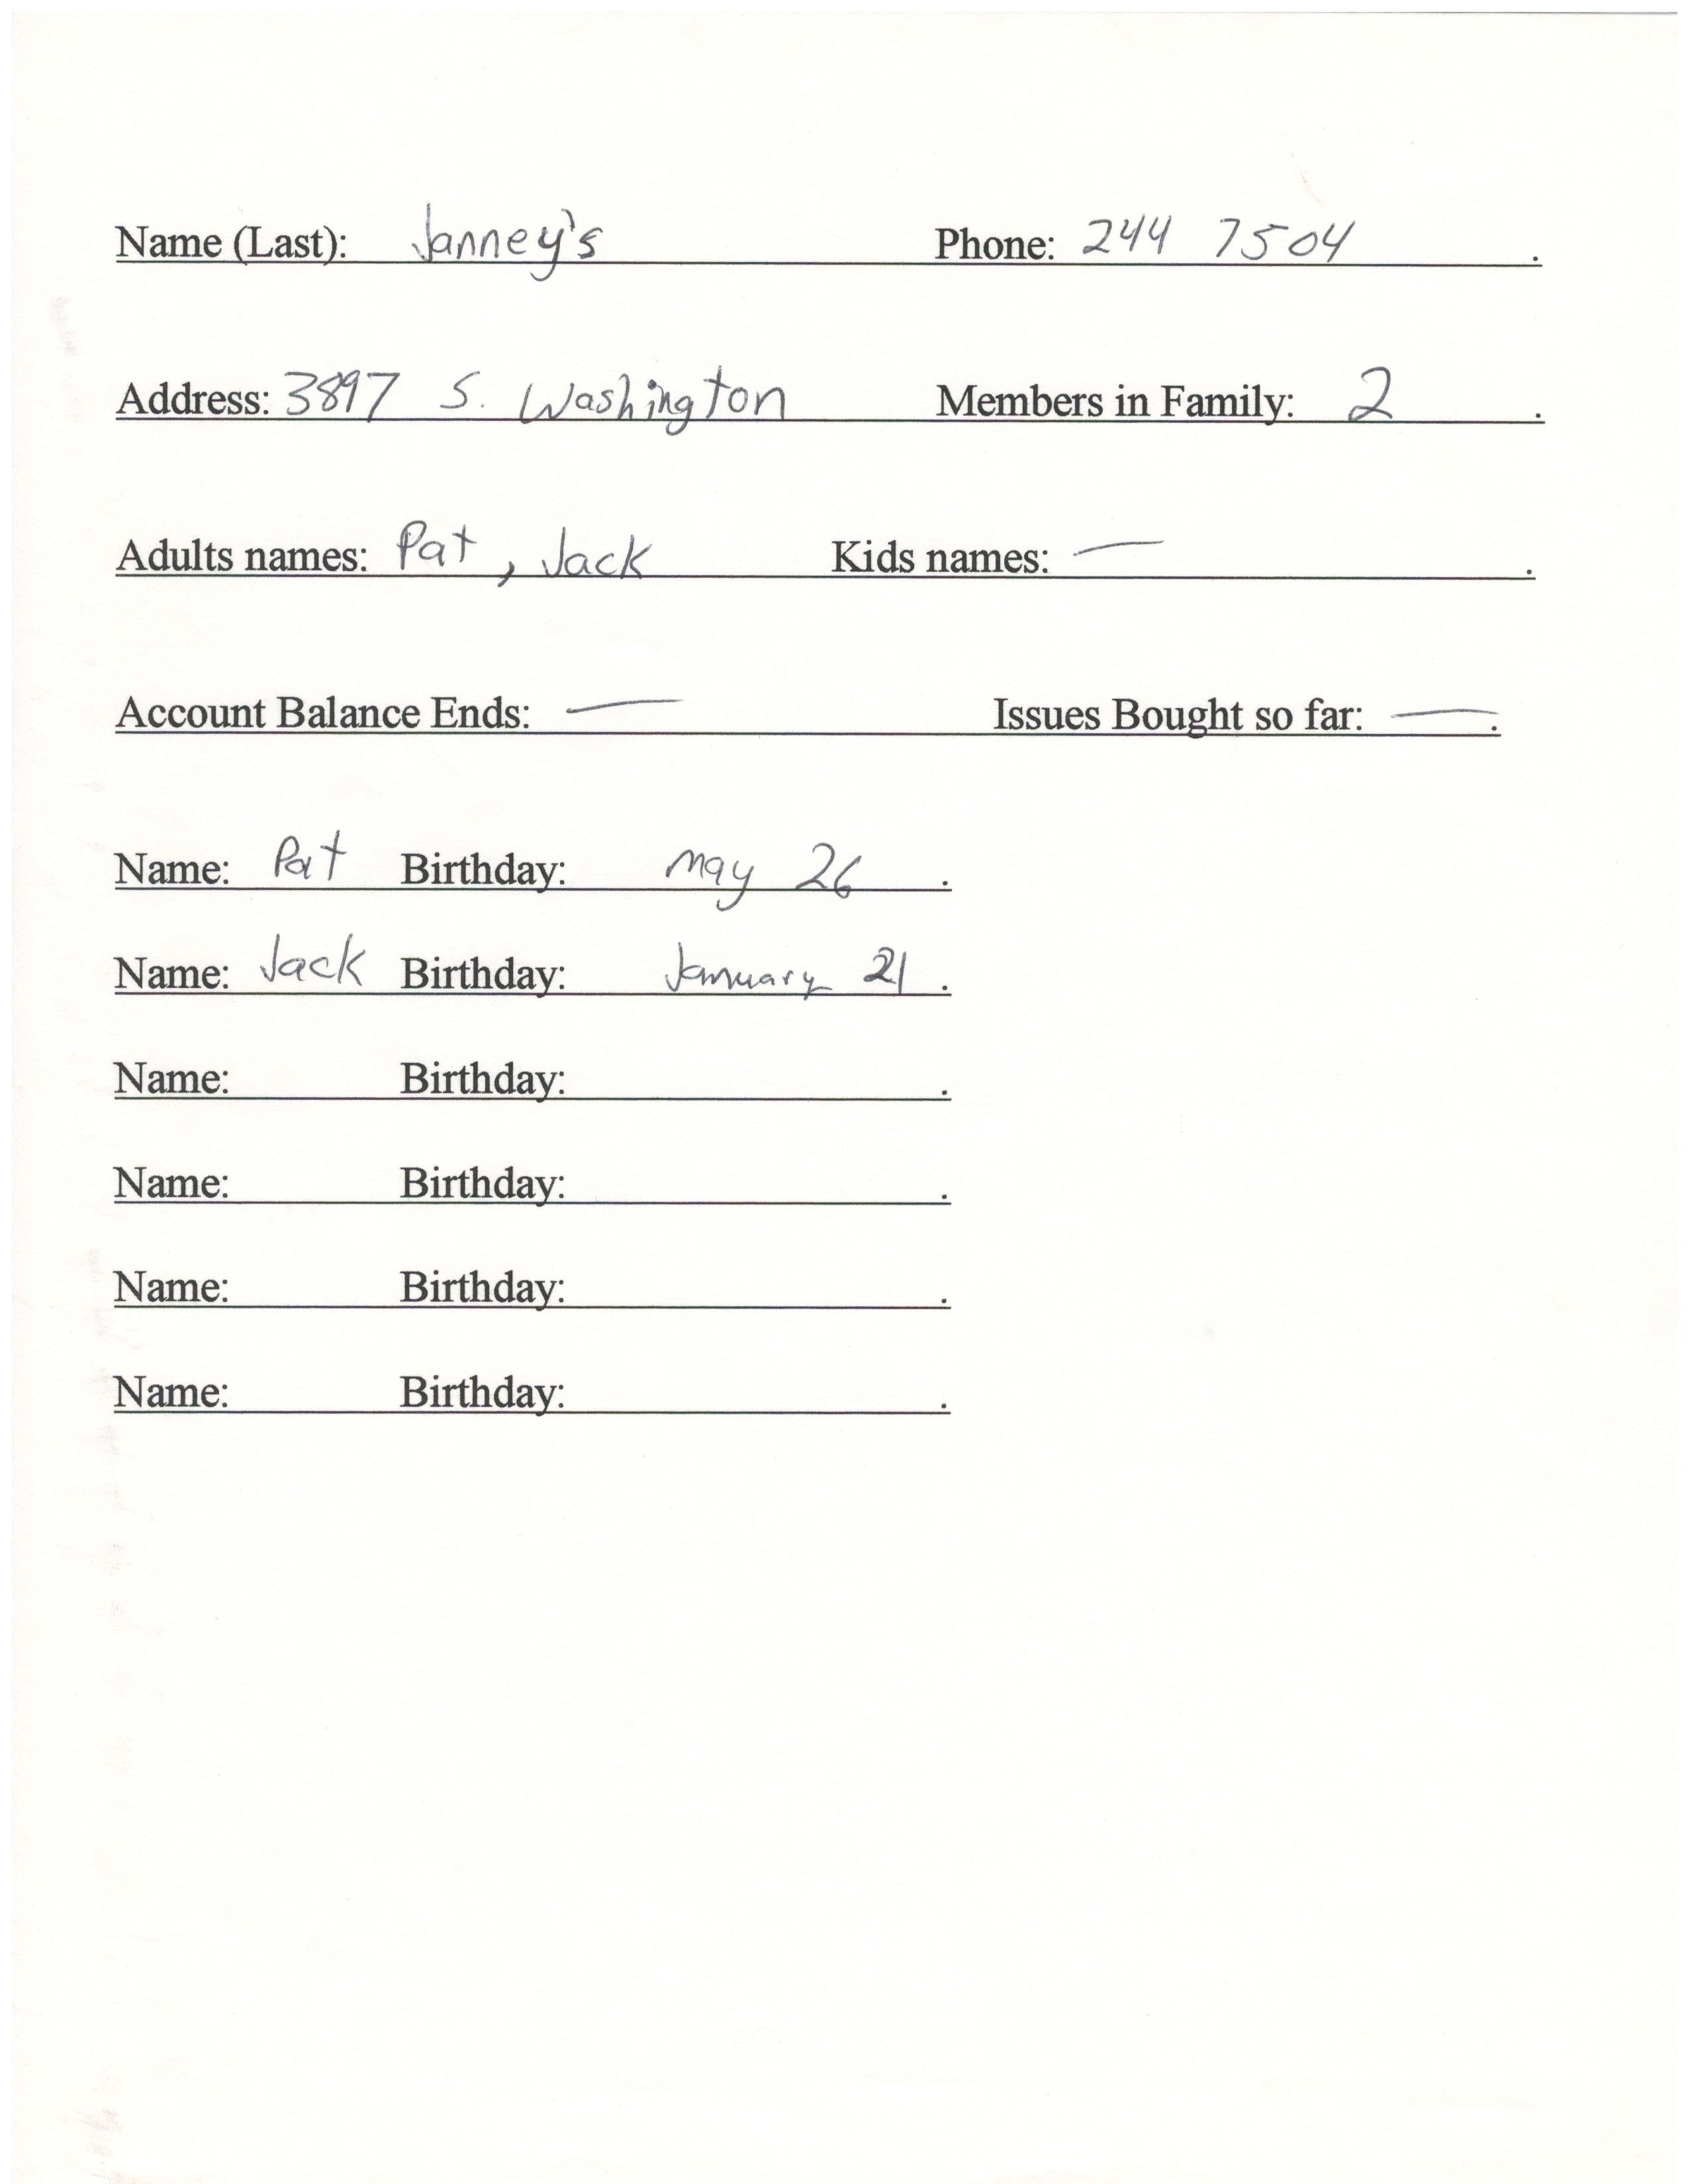 Name (Last): Janney's Phone: 244 7504 .
Address: 3897 S. Washington Members in Family: 2 .
Adults names: Pat, Jack Kids names: — .
Account Balance Ends: — Issues Bought so far: — .
Name: Pat Birthday: May 26 .
Name: Jack Birthday: January 21 .
Name: Birthday: .
Name: Birthday: .
Name: Birthday: .
Name: Birthday: .